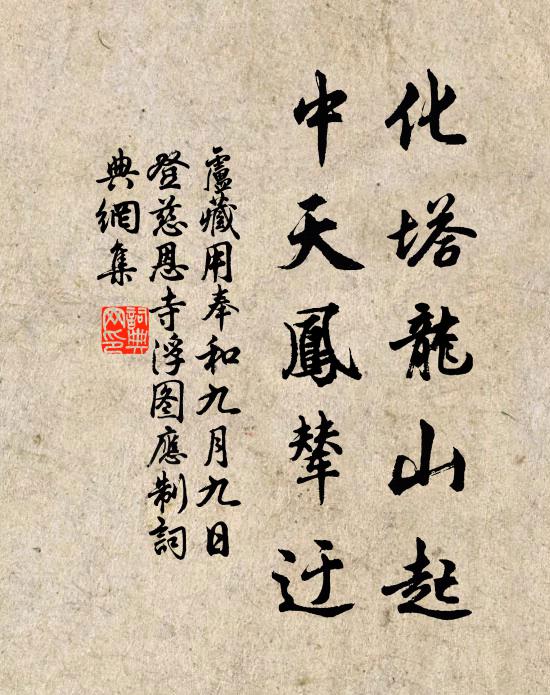 化塔龍山起
中天鳳輦迂
盧藏用奉和九月九日
登慈恩寺浮图應制詞
典網集
詞典
网印